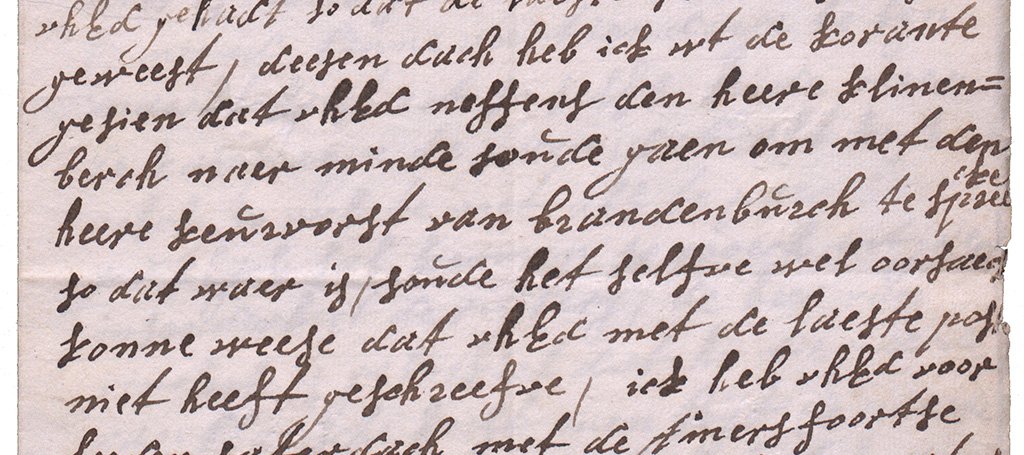 vhEd gehadt so dat de
geweest, deesen dach heb ick wt de korante
gesien dat vhEd neffens den heere klinen=
berch naer minde soude gaen om met den
heere keurvorst van brandenburch te spreecke
so dat waer is, soude het selfve wel oorsaeck
konne weese dat vhEd met de laeste post
niet heeft geschreefve, ick heb vhEd voor
saterdach met de Amersfoortse